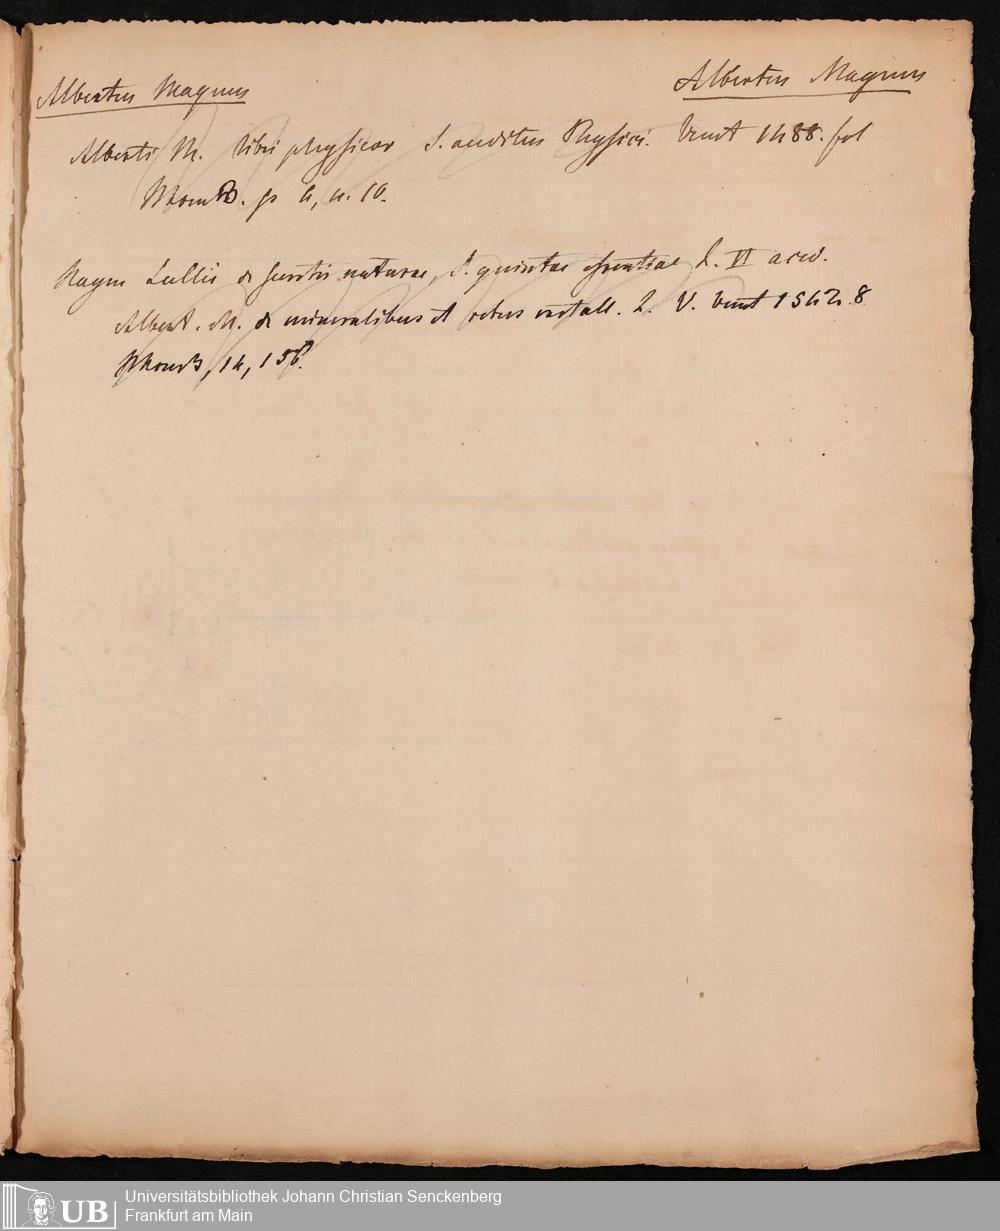 3
Albertus Magnus Albertus Magnus
Alberti M. libri physicor S. auditus Physici. Venet 1488. fol
p 4, n. 10.
Raym Lullii de secretis naturae, S. quintae essentiae L. II acced.
Albert. M. de mineralibus et rebus metall. L. V. Venet 1542. 8
14, 158.
Universitätsbibliothek Johann Christian Senckenberg
Frankfurt am Main
UB